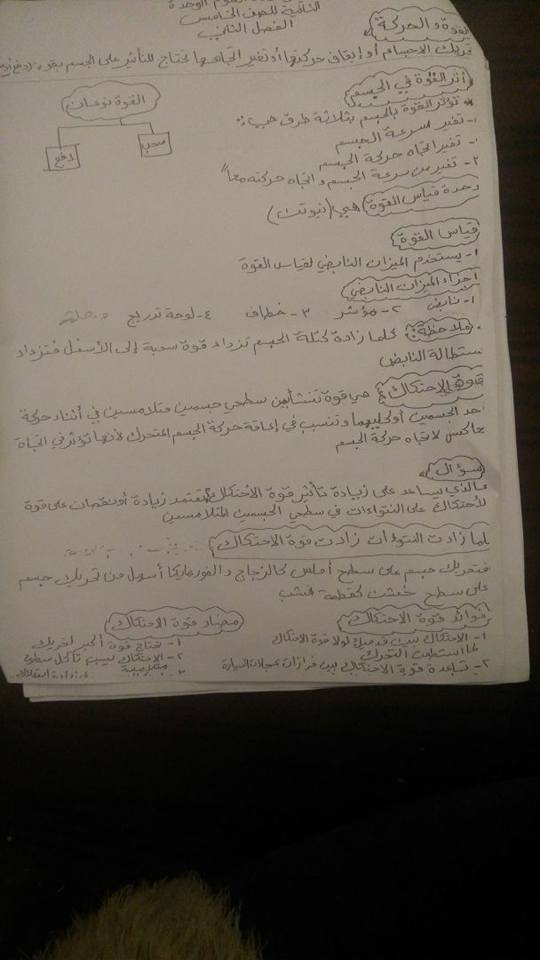 العلوم الوحدة
الثانية للصف الخامس
الفصل الثاني
القوة والحركة
تحريك الاجسام أو إيقاف حركتها أو تغير اتجاهها نحتاج للتأثير على الجسم بقوة (دفع أو
أثر القوة في الجسم
القوة نوعان
سحب
دفع
* تؤثر القوة بالجسم بثلاثة طرق هي:
١- تغير سرعة الجسم
٢- تغير اتجاه حركة الجسم
٣- تغير من سرعة الجسم و اتجاه حركته معاً
وحدة قياس القوة هي (نيوتن)
قياس القوة
١- يستخدم الميزان النابضي لقياس القوة
أجزاء الميزان النابضي
١- نابض ٢- مؤشر ٣- خطاف ٤- لوحة تدريج
ملاحظة: كلما زادة كتلة الجسم تزداد قوة سحبة إلى الأسفل فتزداد
ستطالة النابض
قوة الاحتكاك: هي قوة تنشأ بين سطحي جسمين متلامسين في أثناء حركة
احد الجسمين أو كليهما وتسبب في إعاقة حركة الجسم المتحرك لأنها تؤثر في اتجاة
معاكس لاتجاه حركة الجسم
سؤال
ما الذي يساعد على زيادة تأثير قوة الاحتكاك؟ تعتمد زيادة أو نقصان على قوة
للأحتكاك على النتوءات في سطحي الجسمين المتلامسين
كلما زادت النتوءات زادت قوة الاحتكاك
فتحريك جسم على سطح أملس كالزجاج والفورمايكا أسهل من تحريك جسم
على سطح خشن كقطعة خشب
فوائد قوة الاحتكاك
١- الاحتكاك بين قدميك لولا قوة الاحتكاك
لما استطعت التحرك
٢- تساعدة قوة الاحتكاك بين فرازات عجلات السيارة
مضار قوة الاحتكاك
١- تحتاج قوة أكبر لتحريك
٢- الاحتكاك يسبب تآكل سطوح
٣- زيادة استهلاك